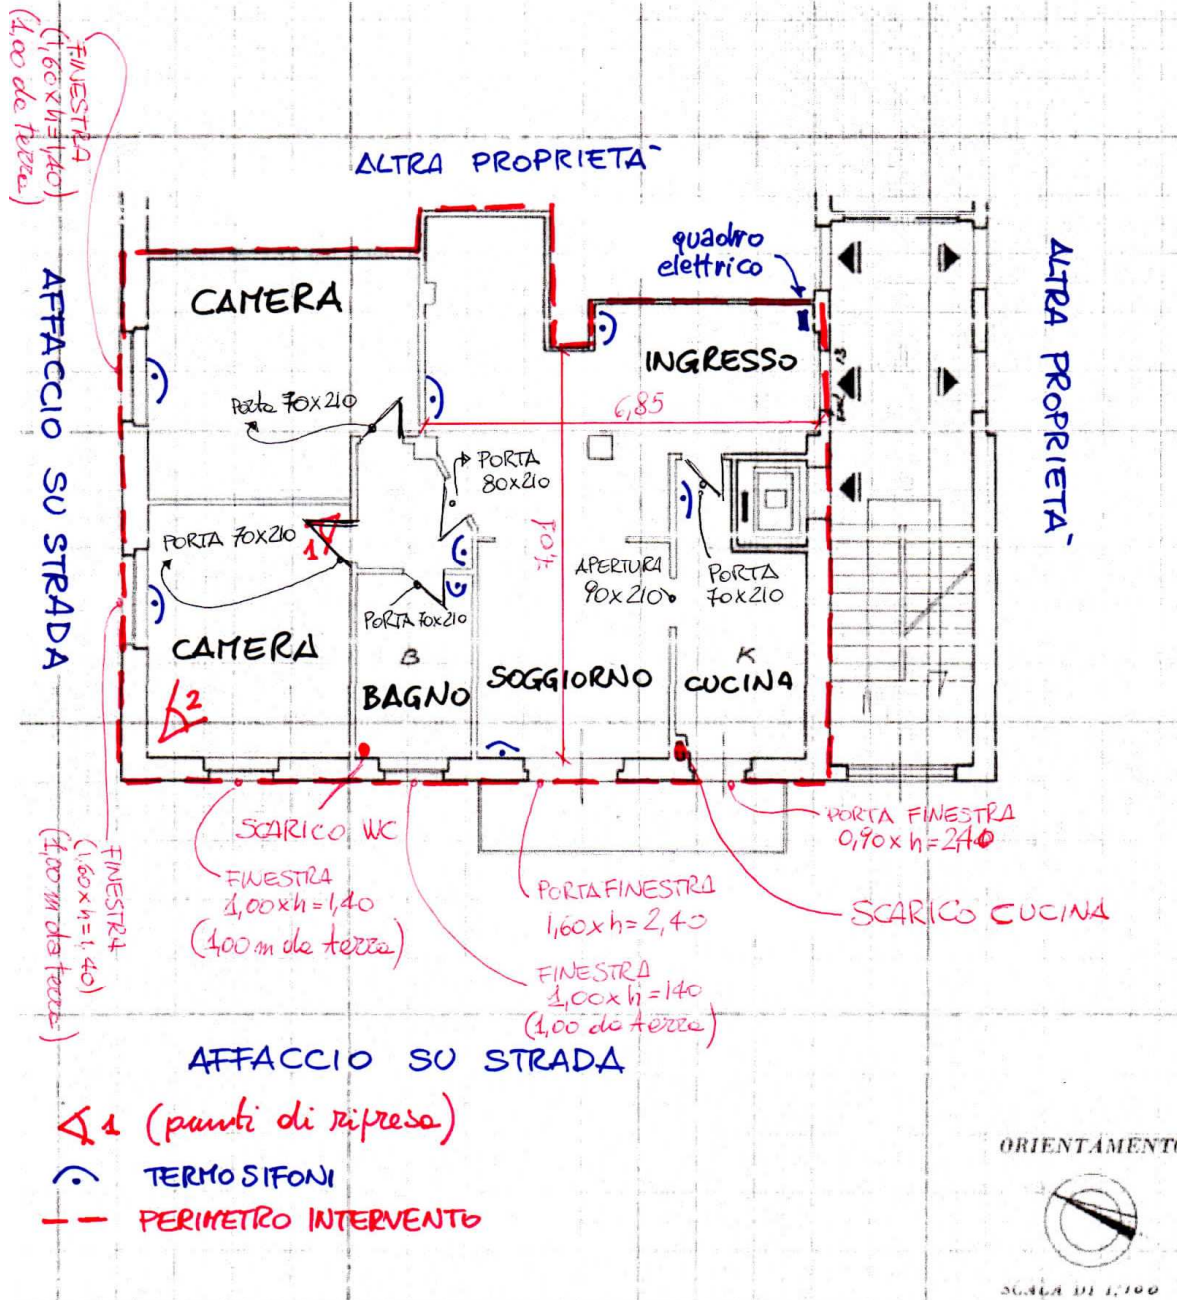 FINESTRA
(1,60xh=1,40)
(1,00 da terra)
ALTRA PROPRIETA`
quadro
elettrico
ALTRA PROPRIETA`
AFFACCIO SU STRADA
CAMERA
INGRESSO
Porta 70x210
6,85
PORTA
80x210
7,04
PORTA 70x210
1
APERTURA
90x210
PORTA
70x210
PORTA 70x210
CAMERA
B
BAGNO
SOGGIORNO
K
CUCINA
2
SCARICO WC
PORTA FINESTRA
0,90xh=240
FINESTRA
1,60xh=1,40)
(1,00 m da terra)
FINESTRA
1,00xh=1,40
(1,00 m da terra)
PORTAFINESTRA
1,60xh=2,40
SCARICO CUCINA
FINESTRA
1,00xh=140
(1,00 da terra)
AFFACCIO SU STRADA
1 (punti di ripresa)
TERMOSIFONI
PERIMETRO INTERVENTO
ORIENTAMENTO
SCALA DI 1:100